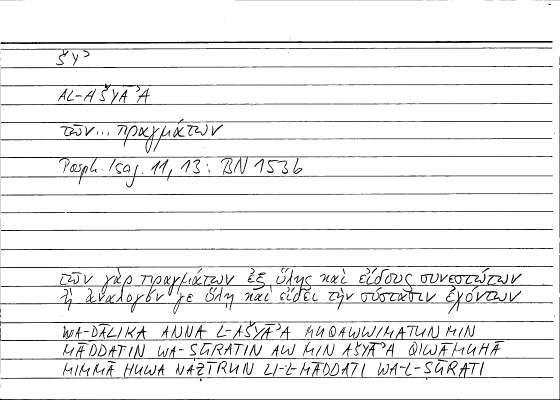 šyʾ
AL-AŠYĀʾA
τῶν... πραγμάτων
Porph. Isag. 11, 13: BN 153b
τῶν γὰρ πραγμάτων ἐξ ὕλης καὶ εἴδους συνεστώτων
ἢ ἀνάλογόν γε ὕλῃ καὶ εἴδει τὴν σύστασιν ἐχόντων
WA-ḎĀLIKA ANNA L-AŠYĀʾA MUQAWWIMATUN MIN
MĀDDATIN WA-ṢŪRATIN AW MIN AŠYĀʾA QIWĀMUHĀ
MIMMĀ HUWA NAẒĪRUN LI-L-MĀDDATI WA-L-ṢŪRATI